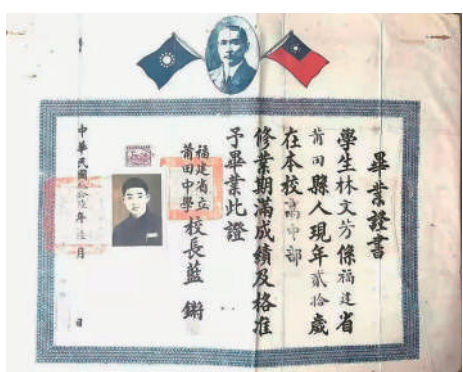 畢業證書
學生林文芳係福建省
莆田縣人現年貳拾歲
在本校高中部
修業期滿成績及格准
予畢業此證
福建省立
莆田中學
校長藍鏘
中華民國 年 月 日